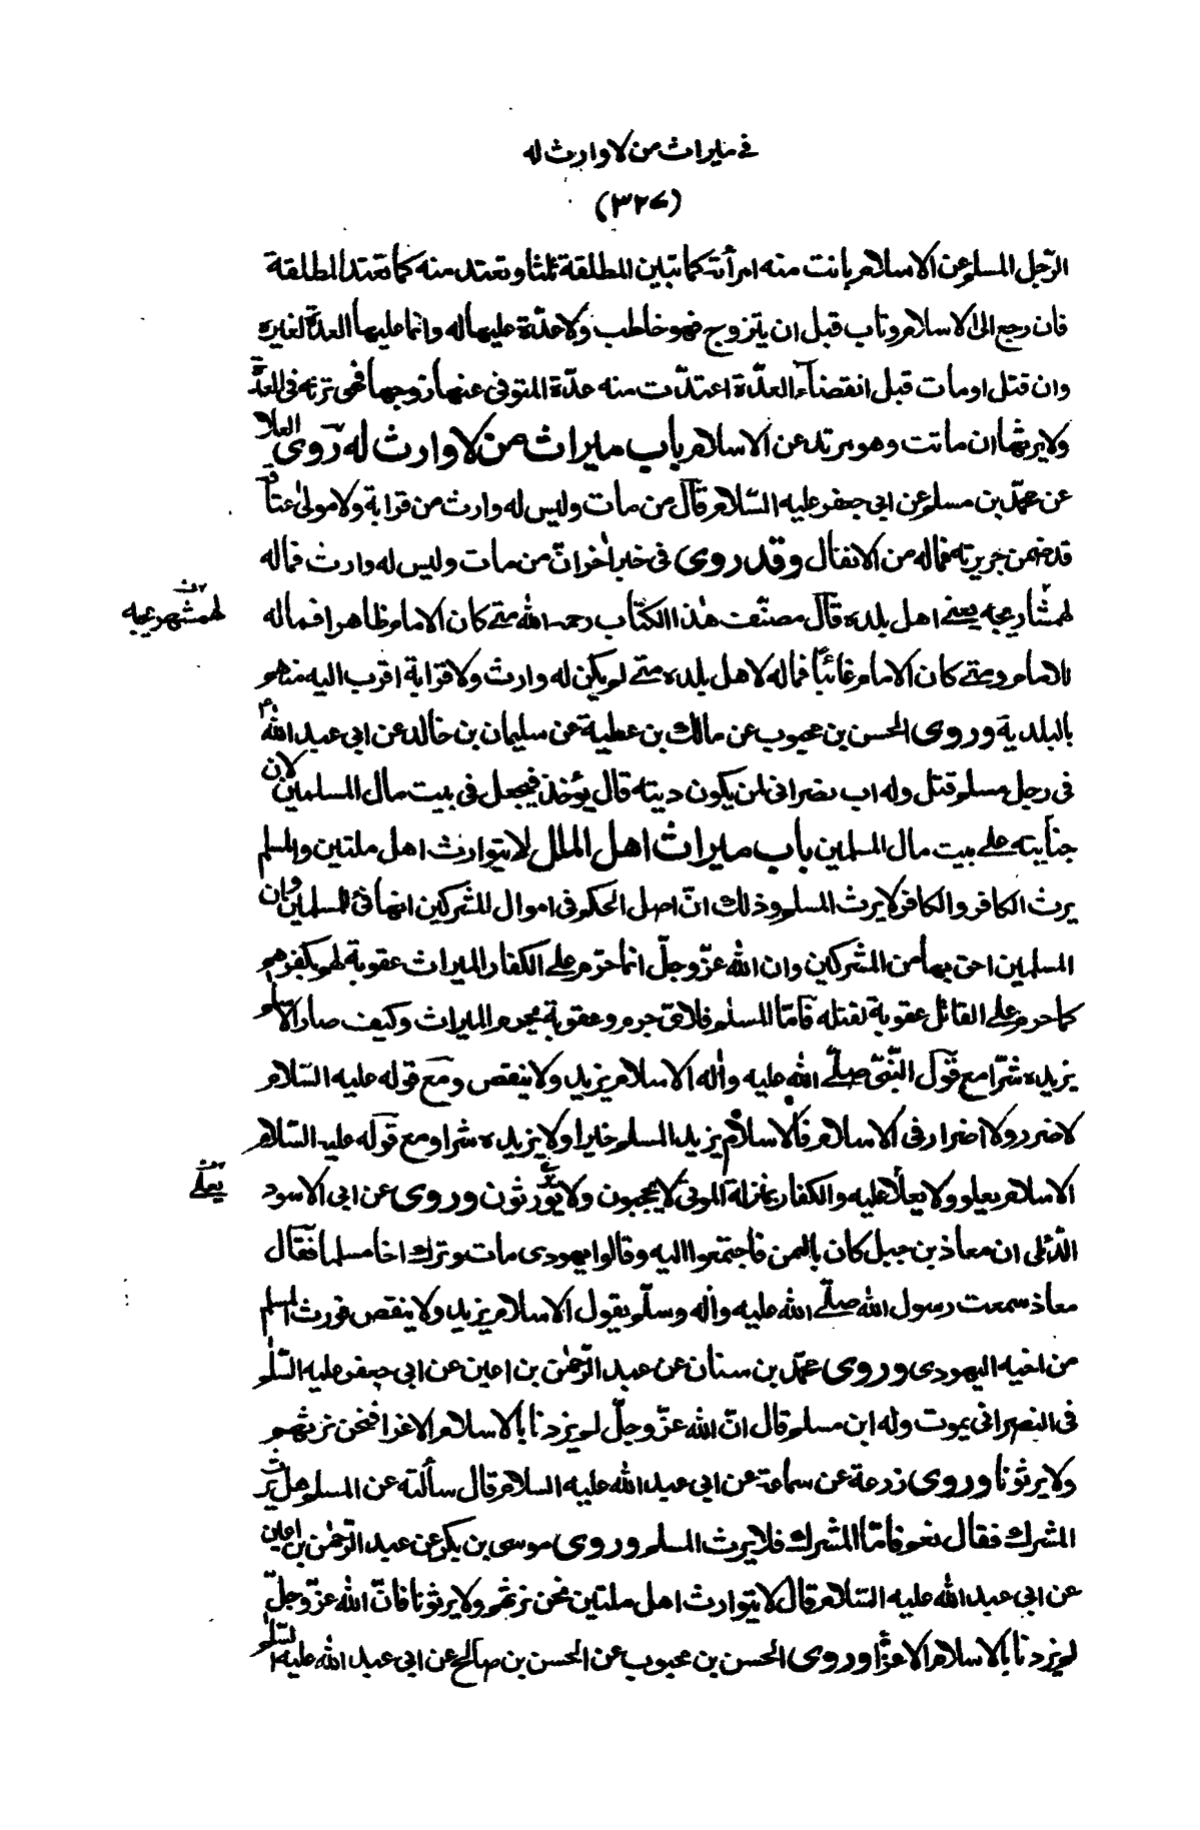 في ميراث من لا وارث له
(٣٢٧)
الرّجل المسلم عن الاسلام بانت منه امرأته كما تبين المطلقة ثلثا وتعتد منه كما تعتد المطلقة
فان رجع الى الاسلام وتاب قبل ان يتزوج فهو خاطب ولا عدّة عليها له وانما عليها العدة لغيره
وان قتل او مات قبل انقضاء العدّة اعتدّت منه عدّة المتوفى عنها زوجها فهى ترثه فى العدّة
ولا يرثها ان ماتت وهو مرتد عن الاسلام باب ميراث من لا وارث له روى العلا
عن محمّد بن مسلم عن ابى جعفر عليه السّلام قال من مات وليس له وارث من قرابة ولا مولى عتاقه
قد ضمن جريرته فماله من الانفال وقد روى فى خبر اخر انّ من مات وليس له وارث فماله
لهمشاريجه يعنى اهل بلده قال مصنّف هذا الكتاب رحمه الله متى كان الامام ظاهرا فماله
لهمشهريجه
للامام ومتى كان الامام غائبًا فماله لاهل بلده متى لم يكن له وارث ولا قرابة اقرب اليه منهم
بالبلدية وروى الحسن بن محبوب عن مالك بن عطية عن سليمان بن خالد عن ابى عبد الله ع
فى رجل مسلم قتل وله اب نصرانى لمن يكون ديته قال يؤخذ فيجعل فى بيت مال المسلمين لان
جنايته على بيت مال المسلمين باب ميراث اهل الملل لا يتوارث اهل ملتين والمسلم
يرث الكافر والكافر لا يرث المسلم وذلك انّ اصل الحكم فى اموال المشركين انها فئ للمسلمين وان
المسلمين احق بها من المشركين وان الله عزّ وجلّ انما حرّم على الكفار الميراث عقوبة لهم بكفرهم
كما حرم على القاتل عقوبة لقتله فامّا المسلم فلاى جرم وعقوبة يحرم الميراث وكيف صار الاسلام
يزيده شرّا مع قول النّبىّ صلّى الله عليه واله الاسلام يزيد ولا ينقص ومع قوله عليه السّلام
لا ضرر ولا اضرار فى الاسلام فالاسلام يزيد المسلم خيرا ولا يزيده شرا ومع قوله عليه السّلام
الاسلام يعلو ولا يعلا عليه والكفار بمنزلة الموتى لا يحجبون ولا يورثون وروى عن ابى الاسود
يعلى
الدّئلى ان معاذ بن جبل كان باليمن فاجتمعوا اليه وقالوا يهودى مات وترك اخا مسلما فقال
معاذ سمعت رسول الله صلّى الله عليه واله وسلّم يقول الاسلام يزيد ولا ينقص فورث المسلم
من اخيه اليهودى وروى محمّد بن سنان عن عبد الرّحمٰن بن اعين عن ابى جعفر عليه السّلام
فى النصرانى يموت وله ابن مسلم قال انّ الله عزّ وجلّ لم يزدنا بالاسلام الا عزا فنحن نرثهم
ولا يرثونا وروى زرعة عن سماعة عن ابى عبد الله عليه السلام قال سألته عن المسلم هل يرث
المشرك فقال نعم فامّا المشرك فلا يرث المسلم وروى موسى بن بكر عن عبد الرّحمٰن بن اعين
عن ابى عبد الله عليه السّلام قال لا يتوارث اهل ملتين نحن نرثهم ولا يرثونا فانّ الله عزّ وجلّ
لم يزدنا بالاسلام الا عزًّا وروى الحسن بن محبوب عن الحسن بن صالح عن ابى عبد الله عليه السّلام